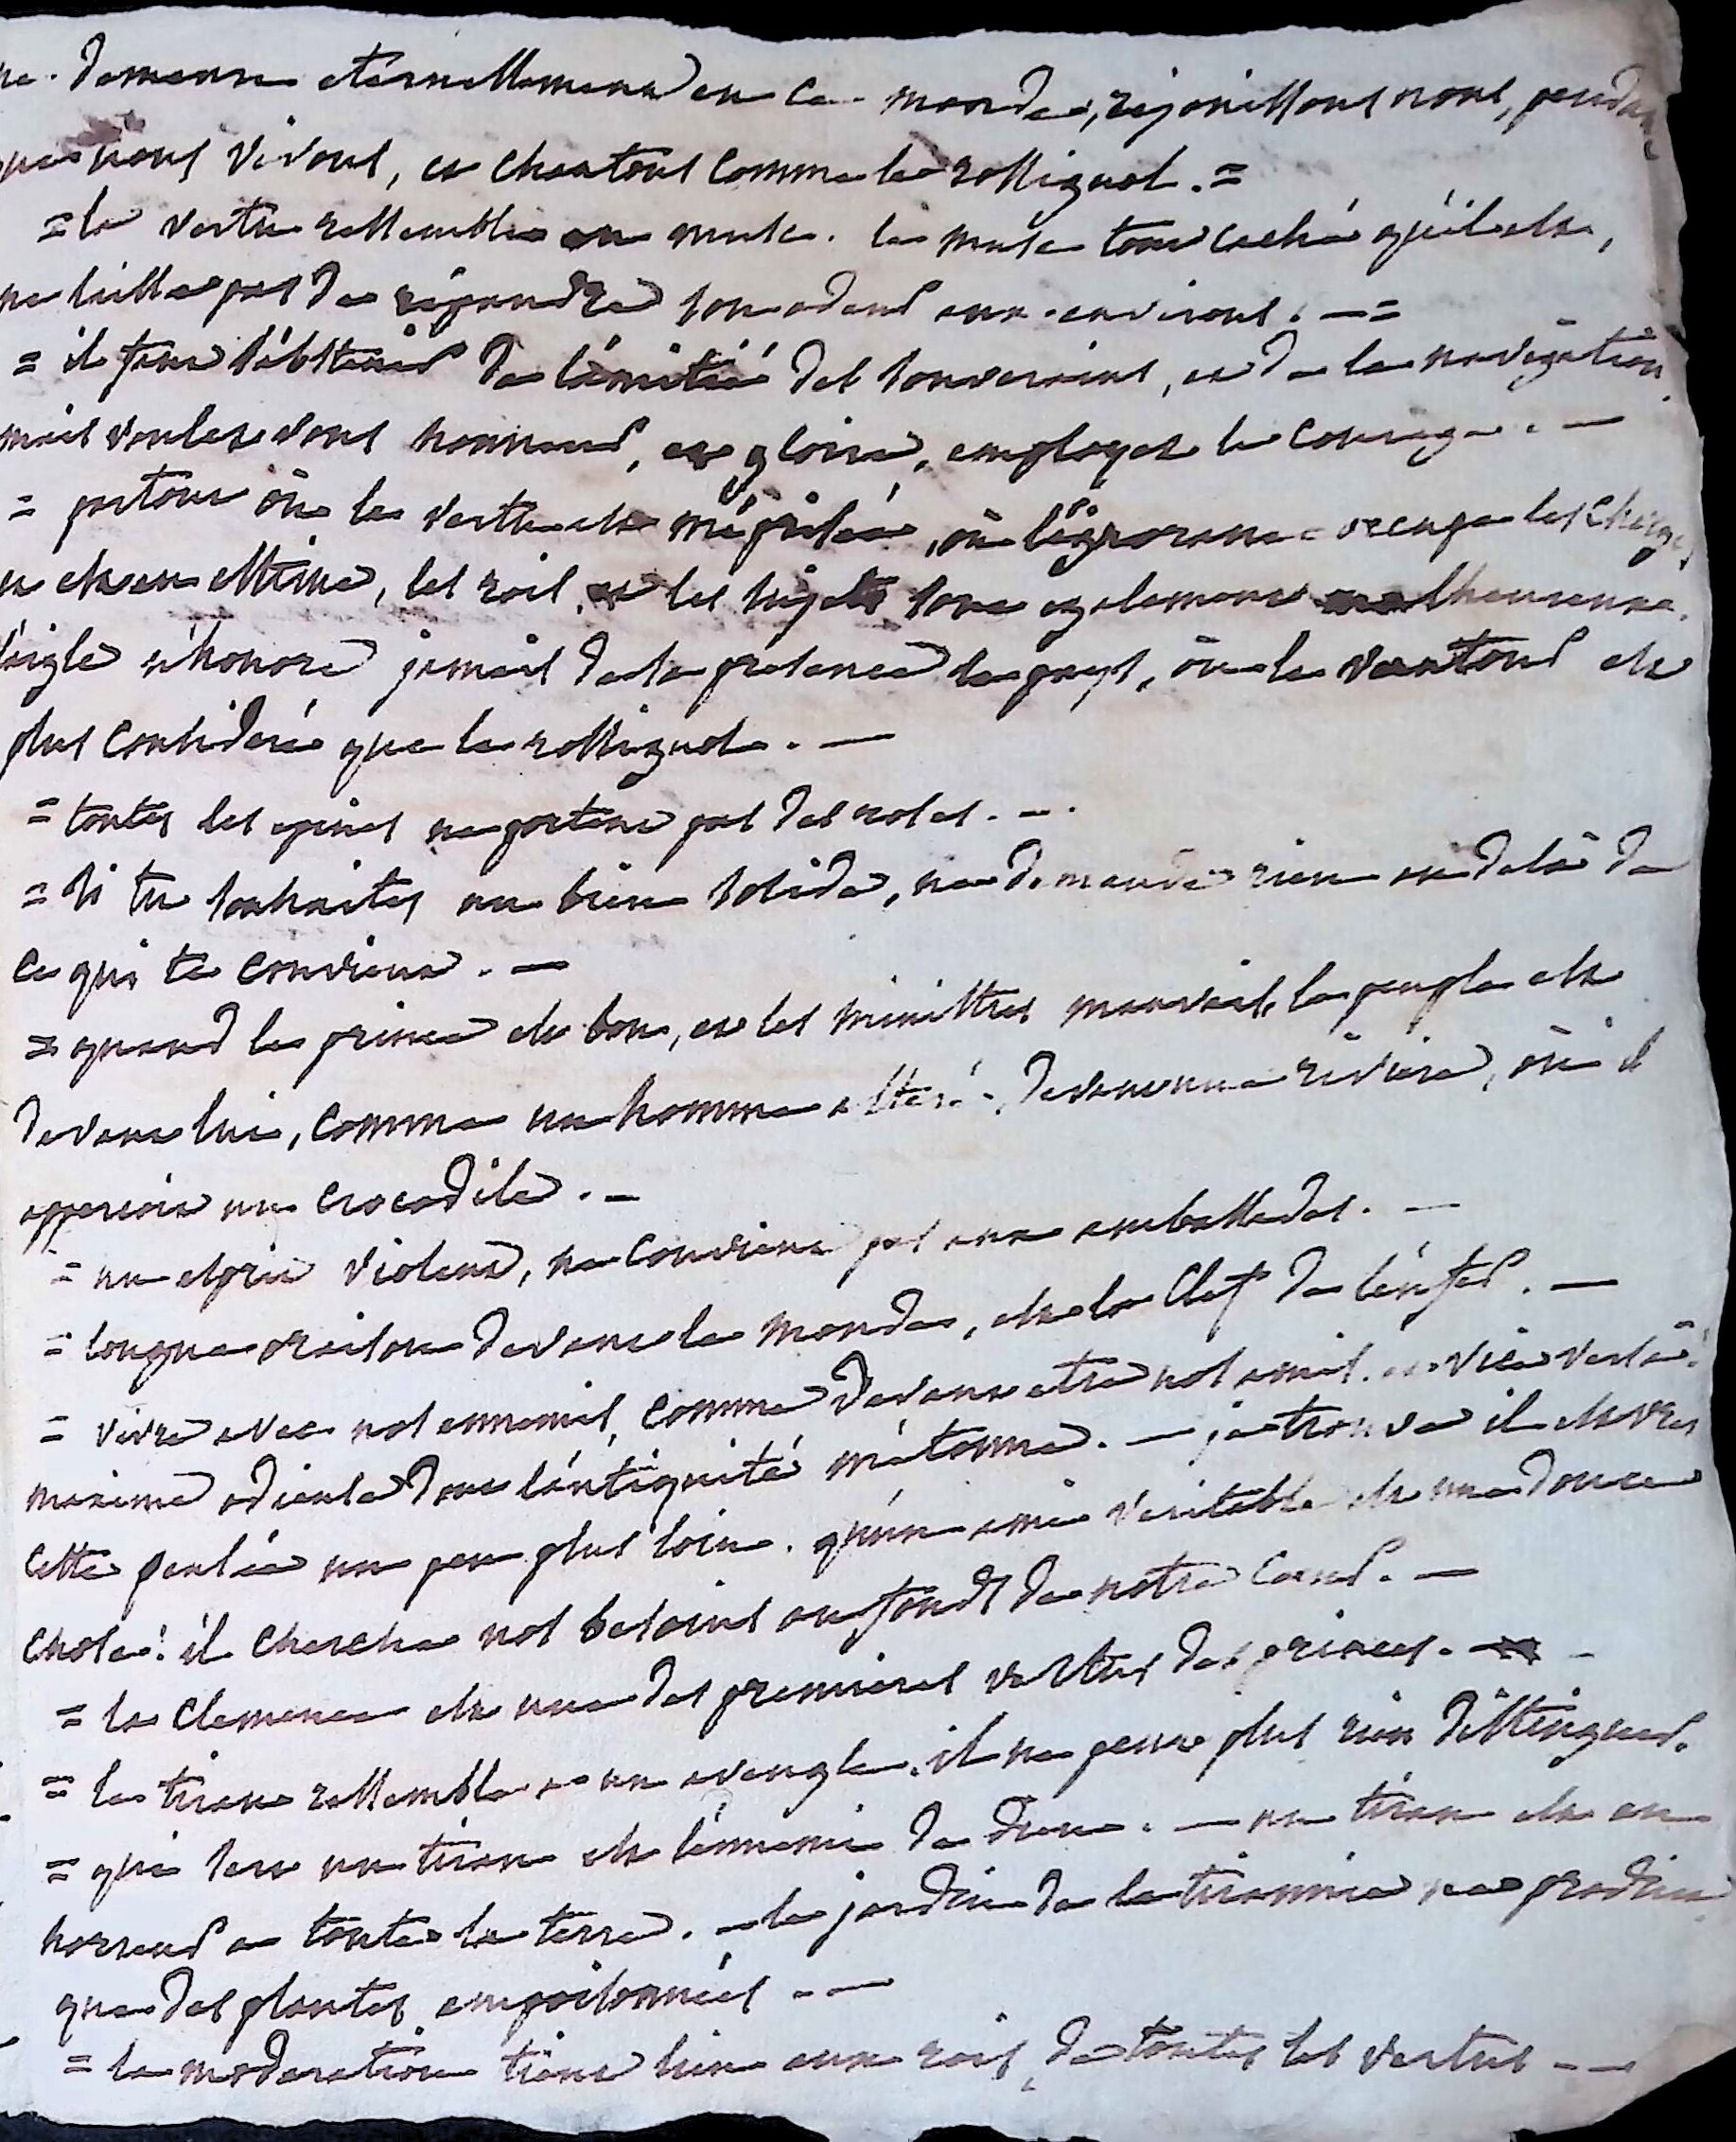 ne demeure eternellement en ce monde, rejouissons nous, pendant
que nous vivons, et chantons comme le rossignol. =
= la vertu ressemble au musc. le musc tout caché qu'il est,
ne laisse pas de répandre son odeur aux environs. —=
= il faut s'abstenir de l'amitié des souverains, et de la navigation
mais voulez vous honneur, et gloire, employez le courage. —
= partout où la vertu est méprisée, où l'ignorance occupe les charges
et est en estime, les rois, et les sujets sont egalement malheureux.
l'aigle n'honore jamais de sa presence le pays, où le vautour est
plus consideré que le rossignol. —
= toutes les epines ne portent pas des roses. —.
= si tu souhaites un bien solide, ne demande rien au delà de
ce qui te convient. —
= quand le prince est bon, et les ministres mauvais, le peuple est
devant lui, comme un homme alteré, devant une riviere, où il
apperçoit un crocodile. —
= un esprit violent, ne convient pas aux ambassades. —
= longue oraison devant le monde, est la clef de l'enfer. —
= vivre avec nos ennemis, comme devant etre nos amis. et vice versâ!
maxime odieuse dont l'antiquité m'étonne. — je trouve il est vrai
cette pensée un peu plus loin. qu'un ami veritable est une douce
chose! il cherche nos besoins au fond de notre coeur. —
= la clemence est une des premieres vertus des princes. —
= le tiran ressemble a un aveugle, il ne peut plus rien distinguer.
= qui sert un tiran est l'ennemi de dieu. — un tiran est en
horreur a toute la terre. — le jardin de la tirannie ne produit
que des plantes empoisonnées. —
= la moderation tient lieu aux rois, de toutes les vertus —